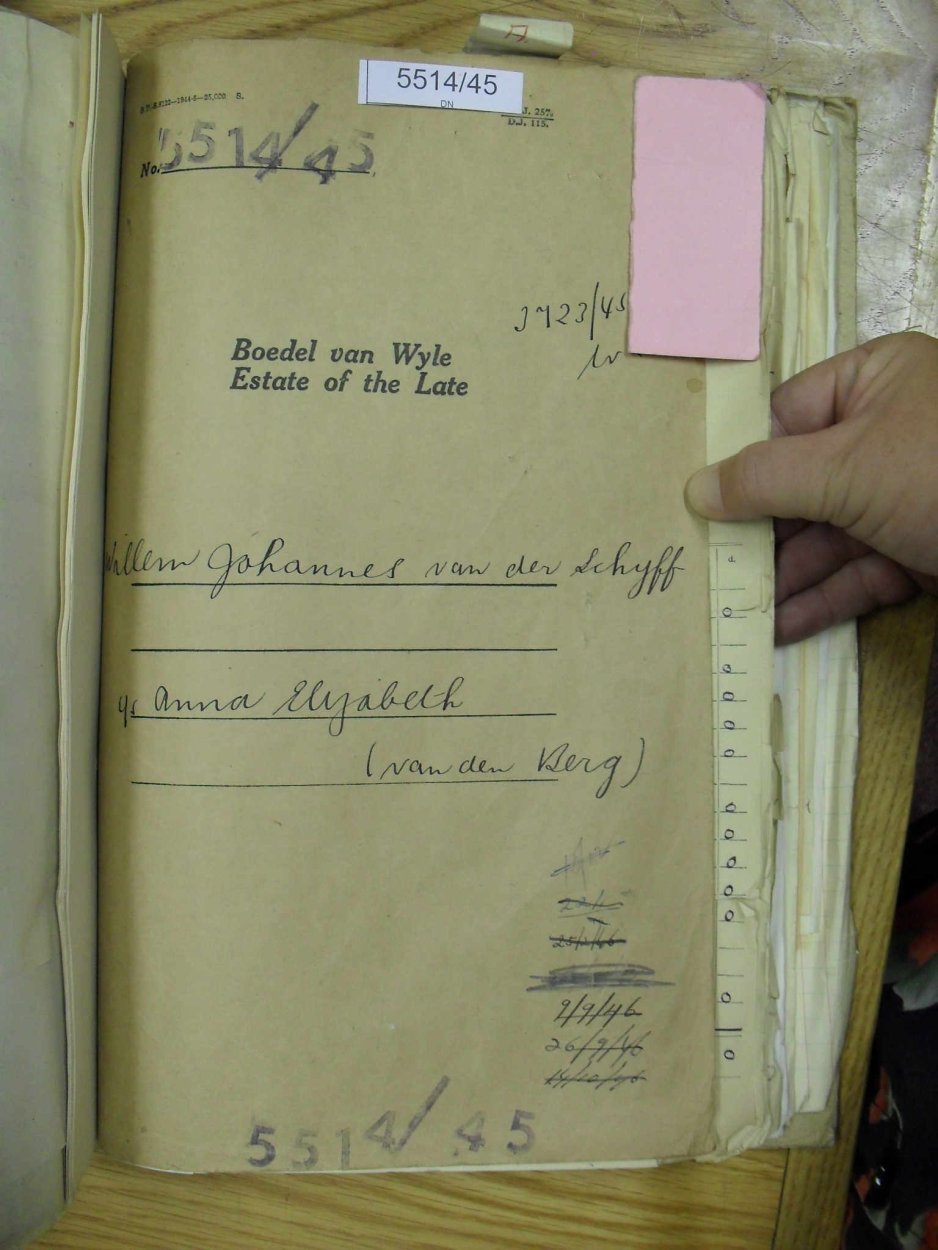 5514/45
DN
S.
J. 257.
D.J. 115.
No. 5514/45
3723/45
Boedel van Wyle
Estate of the Late
Willem Johannes van der Schyff
Anna Elizabeth
(van den Berg)
9/9/46
26/9/46
14/10/46
5514/45